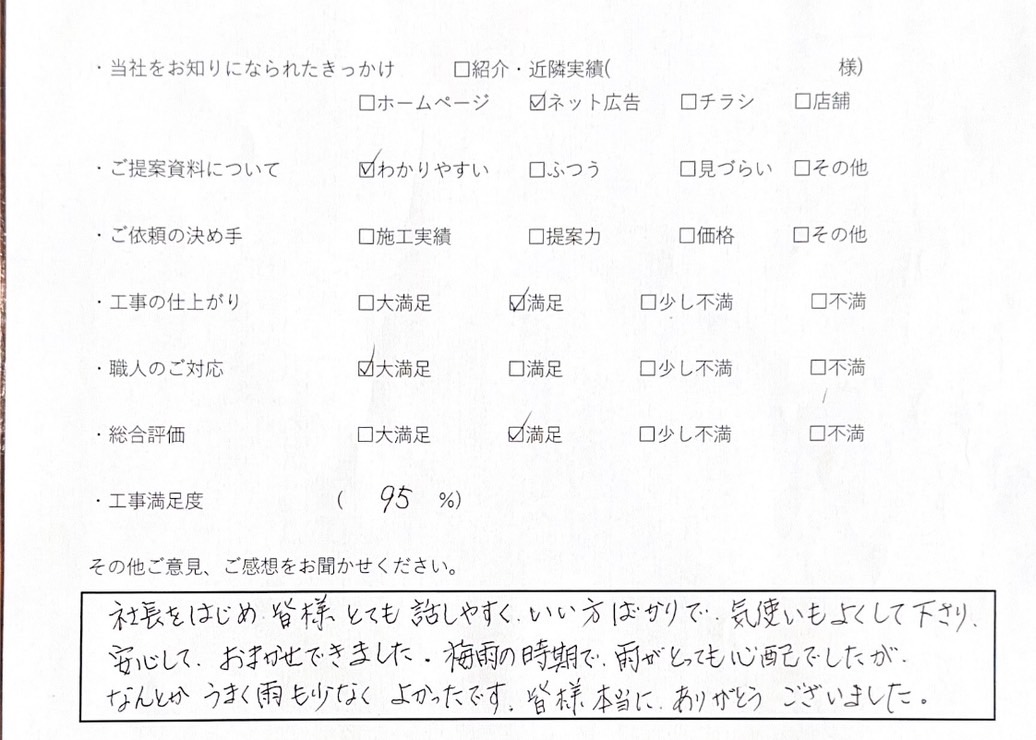 ・当社をお知りになられたきっかけ ☐紹介・近隣実績( 様)
☐ホームページ ☑ネット広告 ☐チラシ ☐店舗
・ご提案資料について ☑わかりやすい ☐ふつう ☐見づらい ☐その他
・ご依頼の決め手 ☐施工実績 ☐提案力 ☐価格 ☐その他
・工事の仕上がり ☐大満足 ☑満足 ☐少し不満 ☐不満
・職人のご対応 ☑大満足 ☐満足 ☐少し不満 ☐不満
・総合評価 ☐大満足 ☑満足 ☐少し不満 ☐不満
・工事満足度 ( 95 %)
その他ご意見、ご感想をお聞かせください。
社長をはじめ、皆様とても話しやすく、いい方ばかりで、気使いもよくして下さり、
安心して、おまかせできました。梅雨の時期で、雨がとっても心配でしたが、
なんとかうまく雨も少なくよかったです。皆様本当に、ありがとうございました。